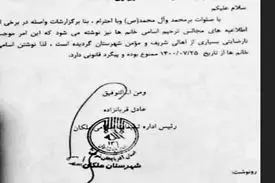 سلام علیکم
با صلوات برمحمد وآل محمد(ص) وبا احترام ، بنا برگزارشات واصله در برخی از
اطلاعیه های مجالس ترحیم اسامی خانم ها نیز نوشته می شود که این امر موجب
نارضایتی بسیاری از اهالی شریف و مؤمن شهرستان گردیده است . لذا نوشتن اسامی
خانم ها از تاریخ ۱۴۰۰/۰۷/۲۵ ممنوع بوده و پیگرد قانونی دارد.
ومن الله التوفیق
عادل قربانزاده
رئیس اداره تبلیغات اسلامی ملکان
شهرستان ملکان
رونوشت: